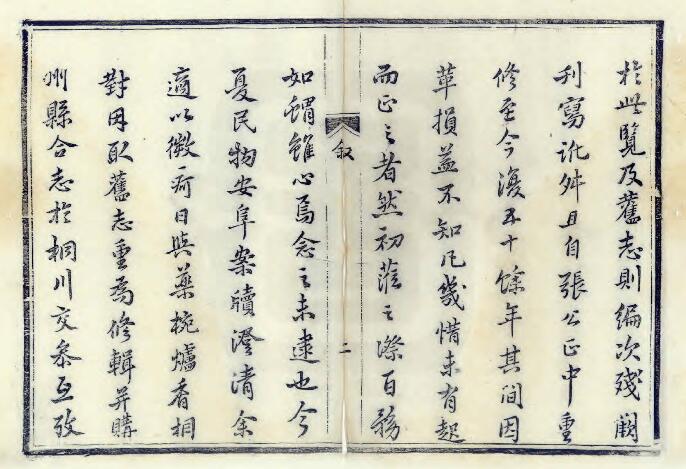 於此覽及舊志則編次殘闕
刊寫訛舛且自張公正中重
修至今復五十餘年其間因
革損益不知凡幾惜未有起
而正之者然初蒞之際百務
叙
二
如蝟雖心焉念之未逮也今
夏民物安阜案牘澄清余
適以微疴日與藥椀爐香相
對因取舊志重為修輯并購
州縣合志於桐川交參互攷